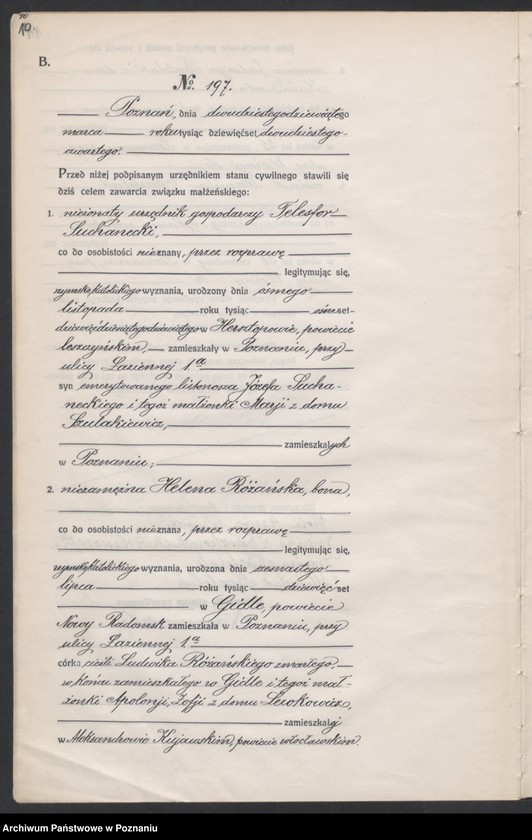 19.
B.
No. 197.
Poznań, dnia dwudziestegodziewiątego
marca roku tysiąc dziewięćset dwudziestego-
czwartego.
Przed niżej podpisanym urzędnikiem stanu cywilnego stawili się
dziś celem zawarcia związku małżeńskiego:
1. nieżonaty urzędnik gospodarczy Telesfor
Suchanecki,
co do osobistości nieznany, przez rozprawę
legitymując się,
rzymsko katolickiego wyznania, urodzony dnia ósmego
listopada roku tysiąc ośmset-
dziewięćdziesiątegodziewiątego w Hersztopowie, powiecie
leszczyńskim, zamieszkały w Poznaniu, przy
ulicy Łaziennej 1a
syn emerytowanego listonosza Józefa Sucha-
neckiego i tegoż małżonki Marji z domu
Szulakiewicz,
zamieszkałych
w Poznaniu;
2. niezamężna Helena Różańska, bona,
co do osobistości nieznana, przez rozprawę
legitymując się,
rzymsko katolickiego wyznania, urodzona dnia
lipca roku tysiąc dziewięćset
w Gidle, powiecie
Nowy Radomsk zamieszkała w Poznaniu, przy
ulicy Łaziennej 1a
córka cieśli Ludwika Różańskiego zmarłego,
w końcu zamieszkałego w Gidle i tegoż mał-
żonki Apolonji, Zofji z domu Lewkowicz,
zamieszkałej
w Aleksandrowie Kujawskim, powiecie włocławskim.
Archiwum Państwowe w Poznaniu